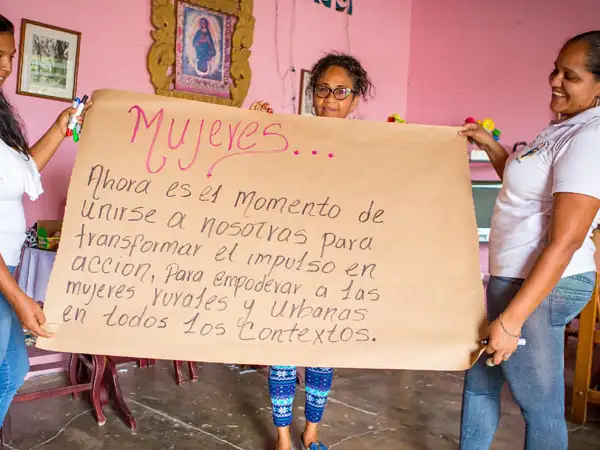 Mujeres...
Ahora es el Momento de
unirse a nosotras para
transformar el impulso en
accion, para empoderar a las
mujeres rurales y urbanas
en todos los contextos.